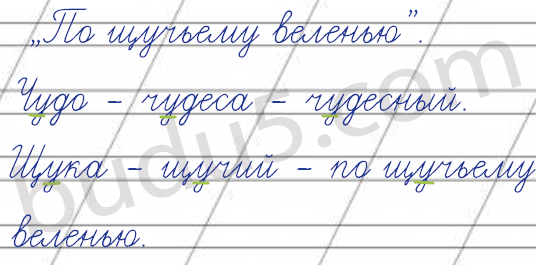 „По щучьему веленью”.
Чудо – чудеса – чудесный.
Щука – щучий – по щучьему
веленью.
budu5.com